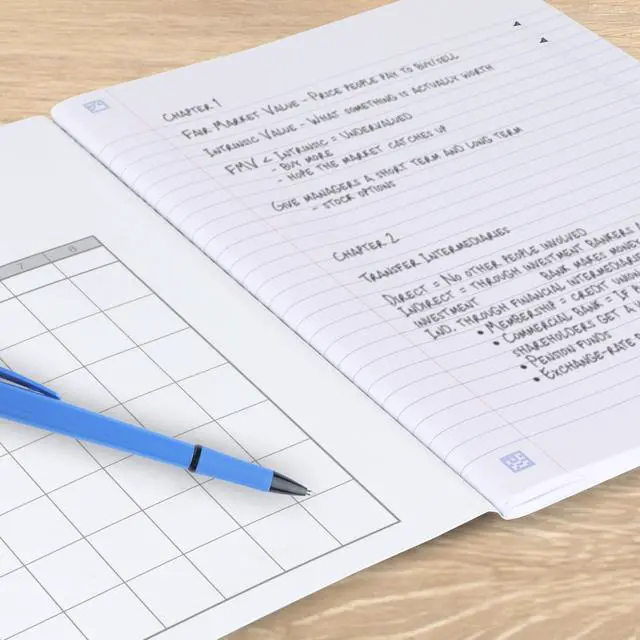 7 8
CHAPTER 1
FAIR MARKET VALUE - PRICE PEOPLE PAY TO BUY/SELL
INTRINSIC VALUE - WHAT SOMETHING IS ACTUALLY WORTH
FMV < INTRINSIC = UNDERVALUED
- BUY MORE
- HOPE THE MARKET CATCHES UP
GIVE MANAGERS A SHORT TERM AND LONG TERM
- STOCK OPTIONS
CHAPTER 2
TRANSFER INTERMEDIARIES
DIRECT = NO OTHER PEOPLE INVOLVED
INDIRECT = THROUGH INVESTMENT BANKERS
INVESTMENT BANK MARKET MONEY
IND. THROUGH FINANCIAL INTERMEDIARIES
• MEMBERSHIP = CREDIT
• COMMERCIAL BANK = IF
SHAREHOLDERS GET A
• PENSION FUNDS
• EXCHANGE-RATE